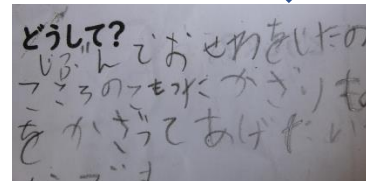 どうして？
じぶんでおせわをしたの
こころのこもったかざりもの
をかざってあげたい